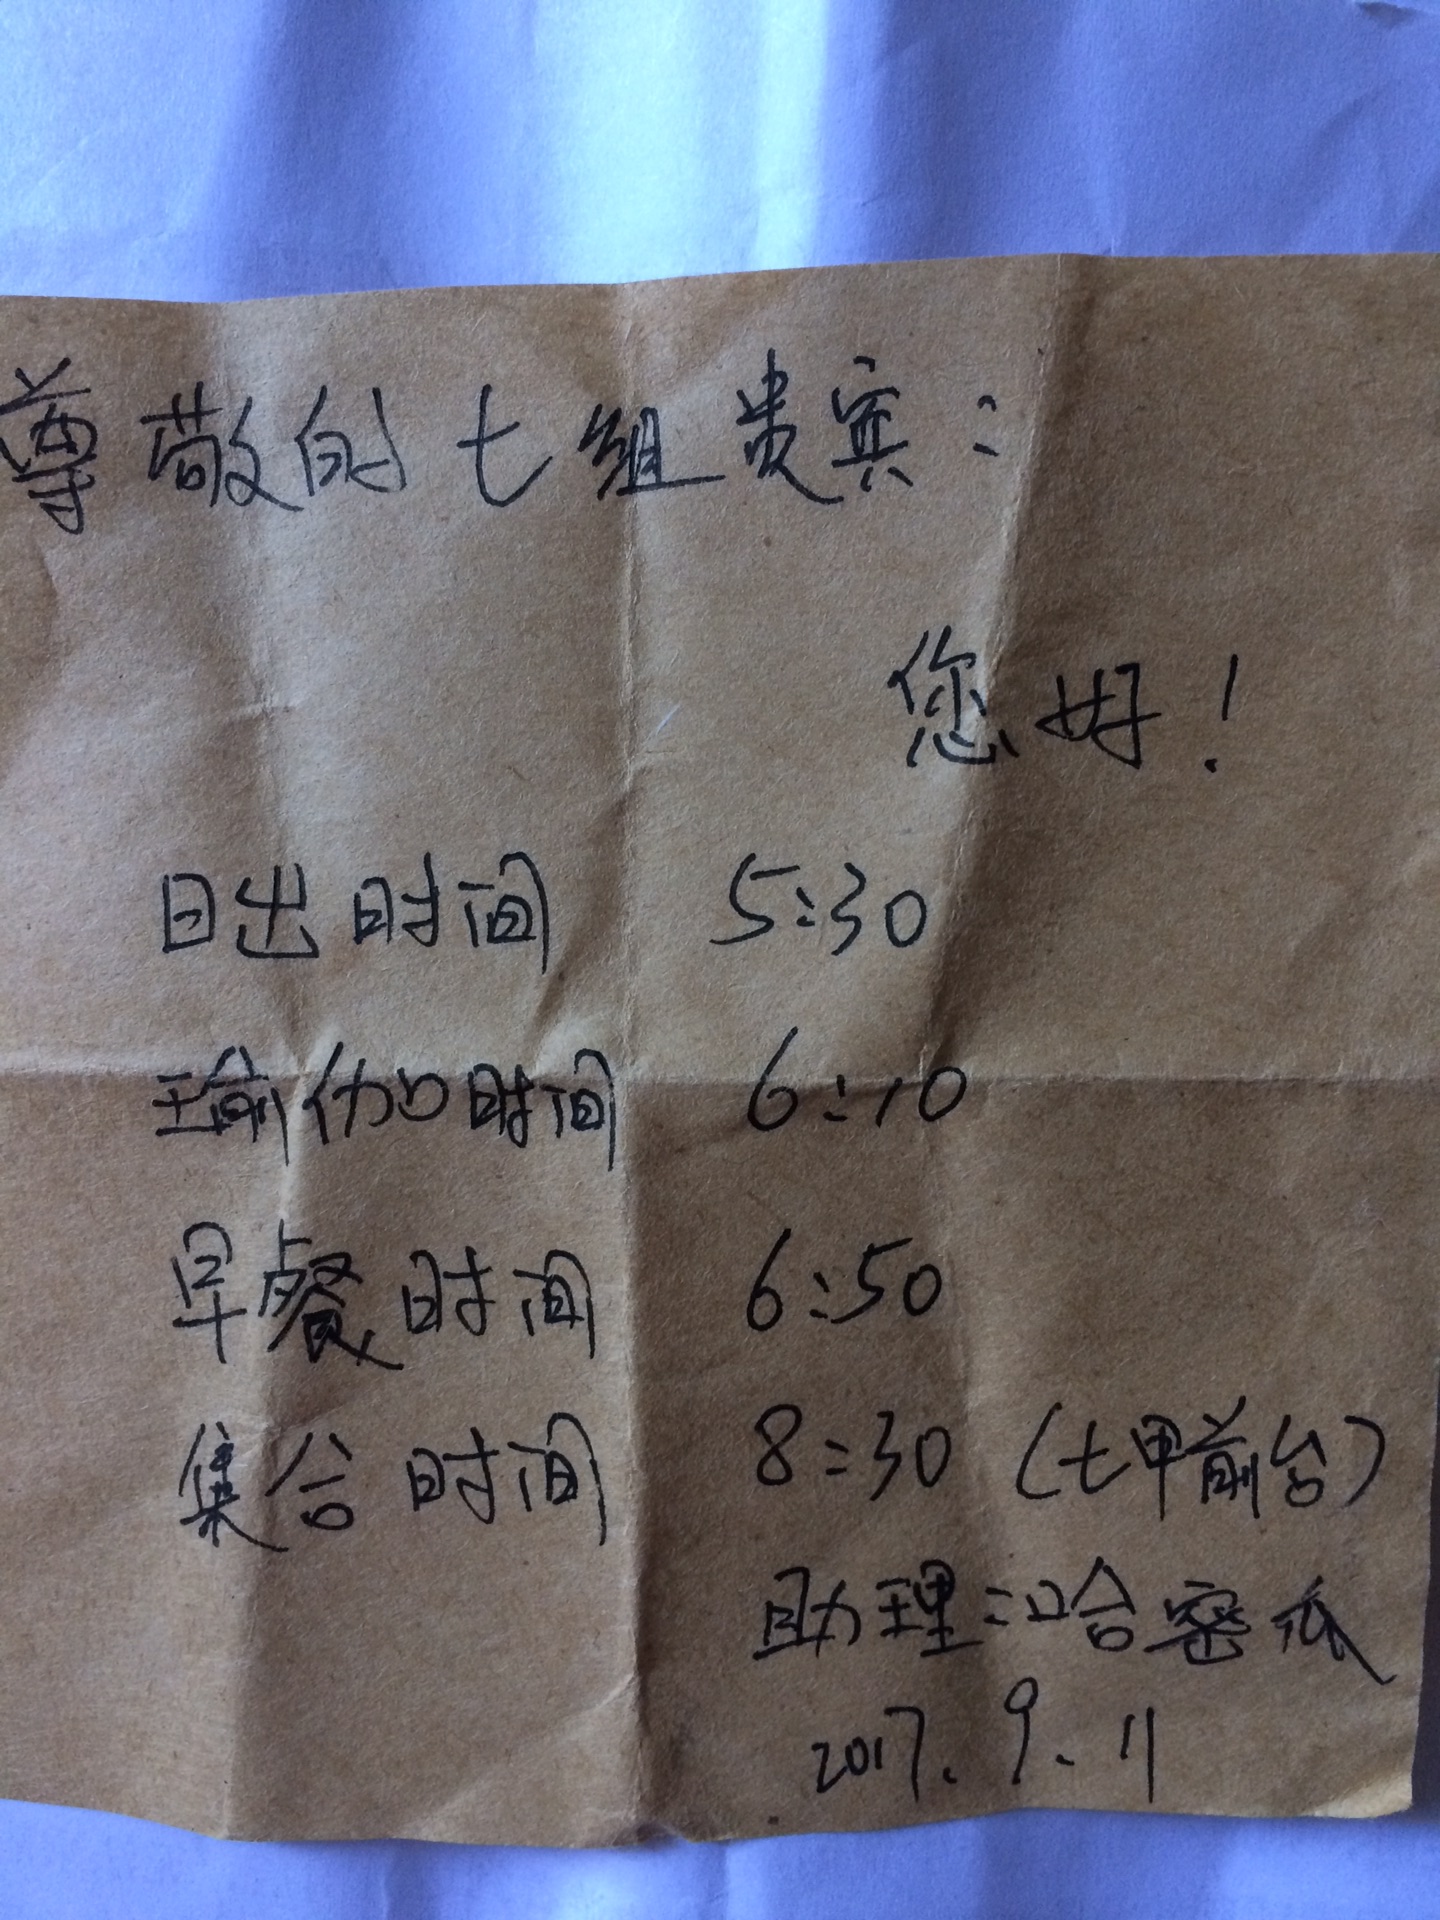 尊敬的七组贵宾：
您好！
日出时间 5:30
瑜伽时间 6:10
早餐时间 6:50
集合时间 8:30（七甲前台）
助理：哈密瓜
2017.9.11